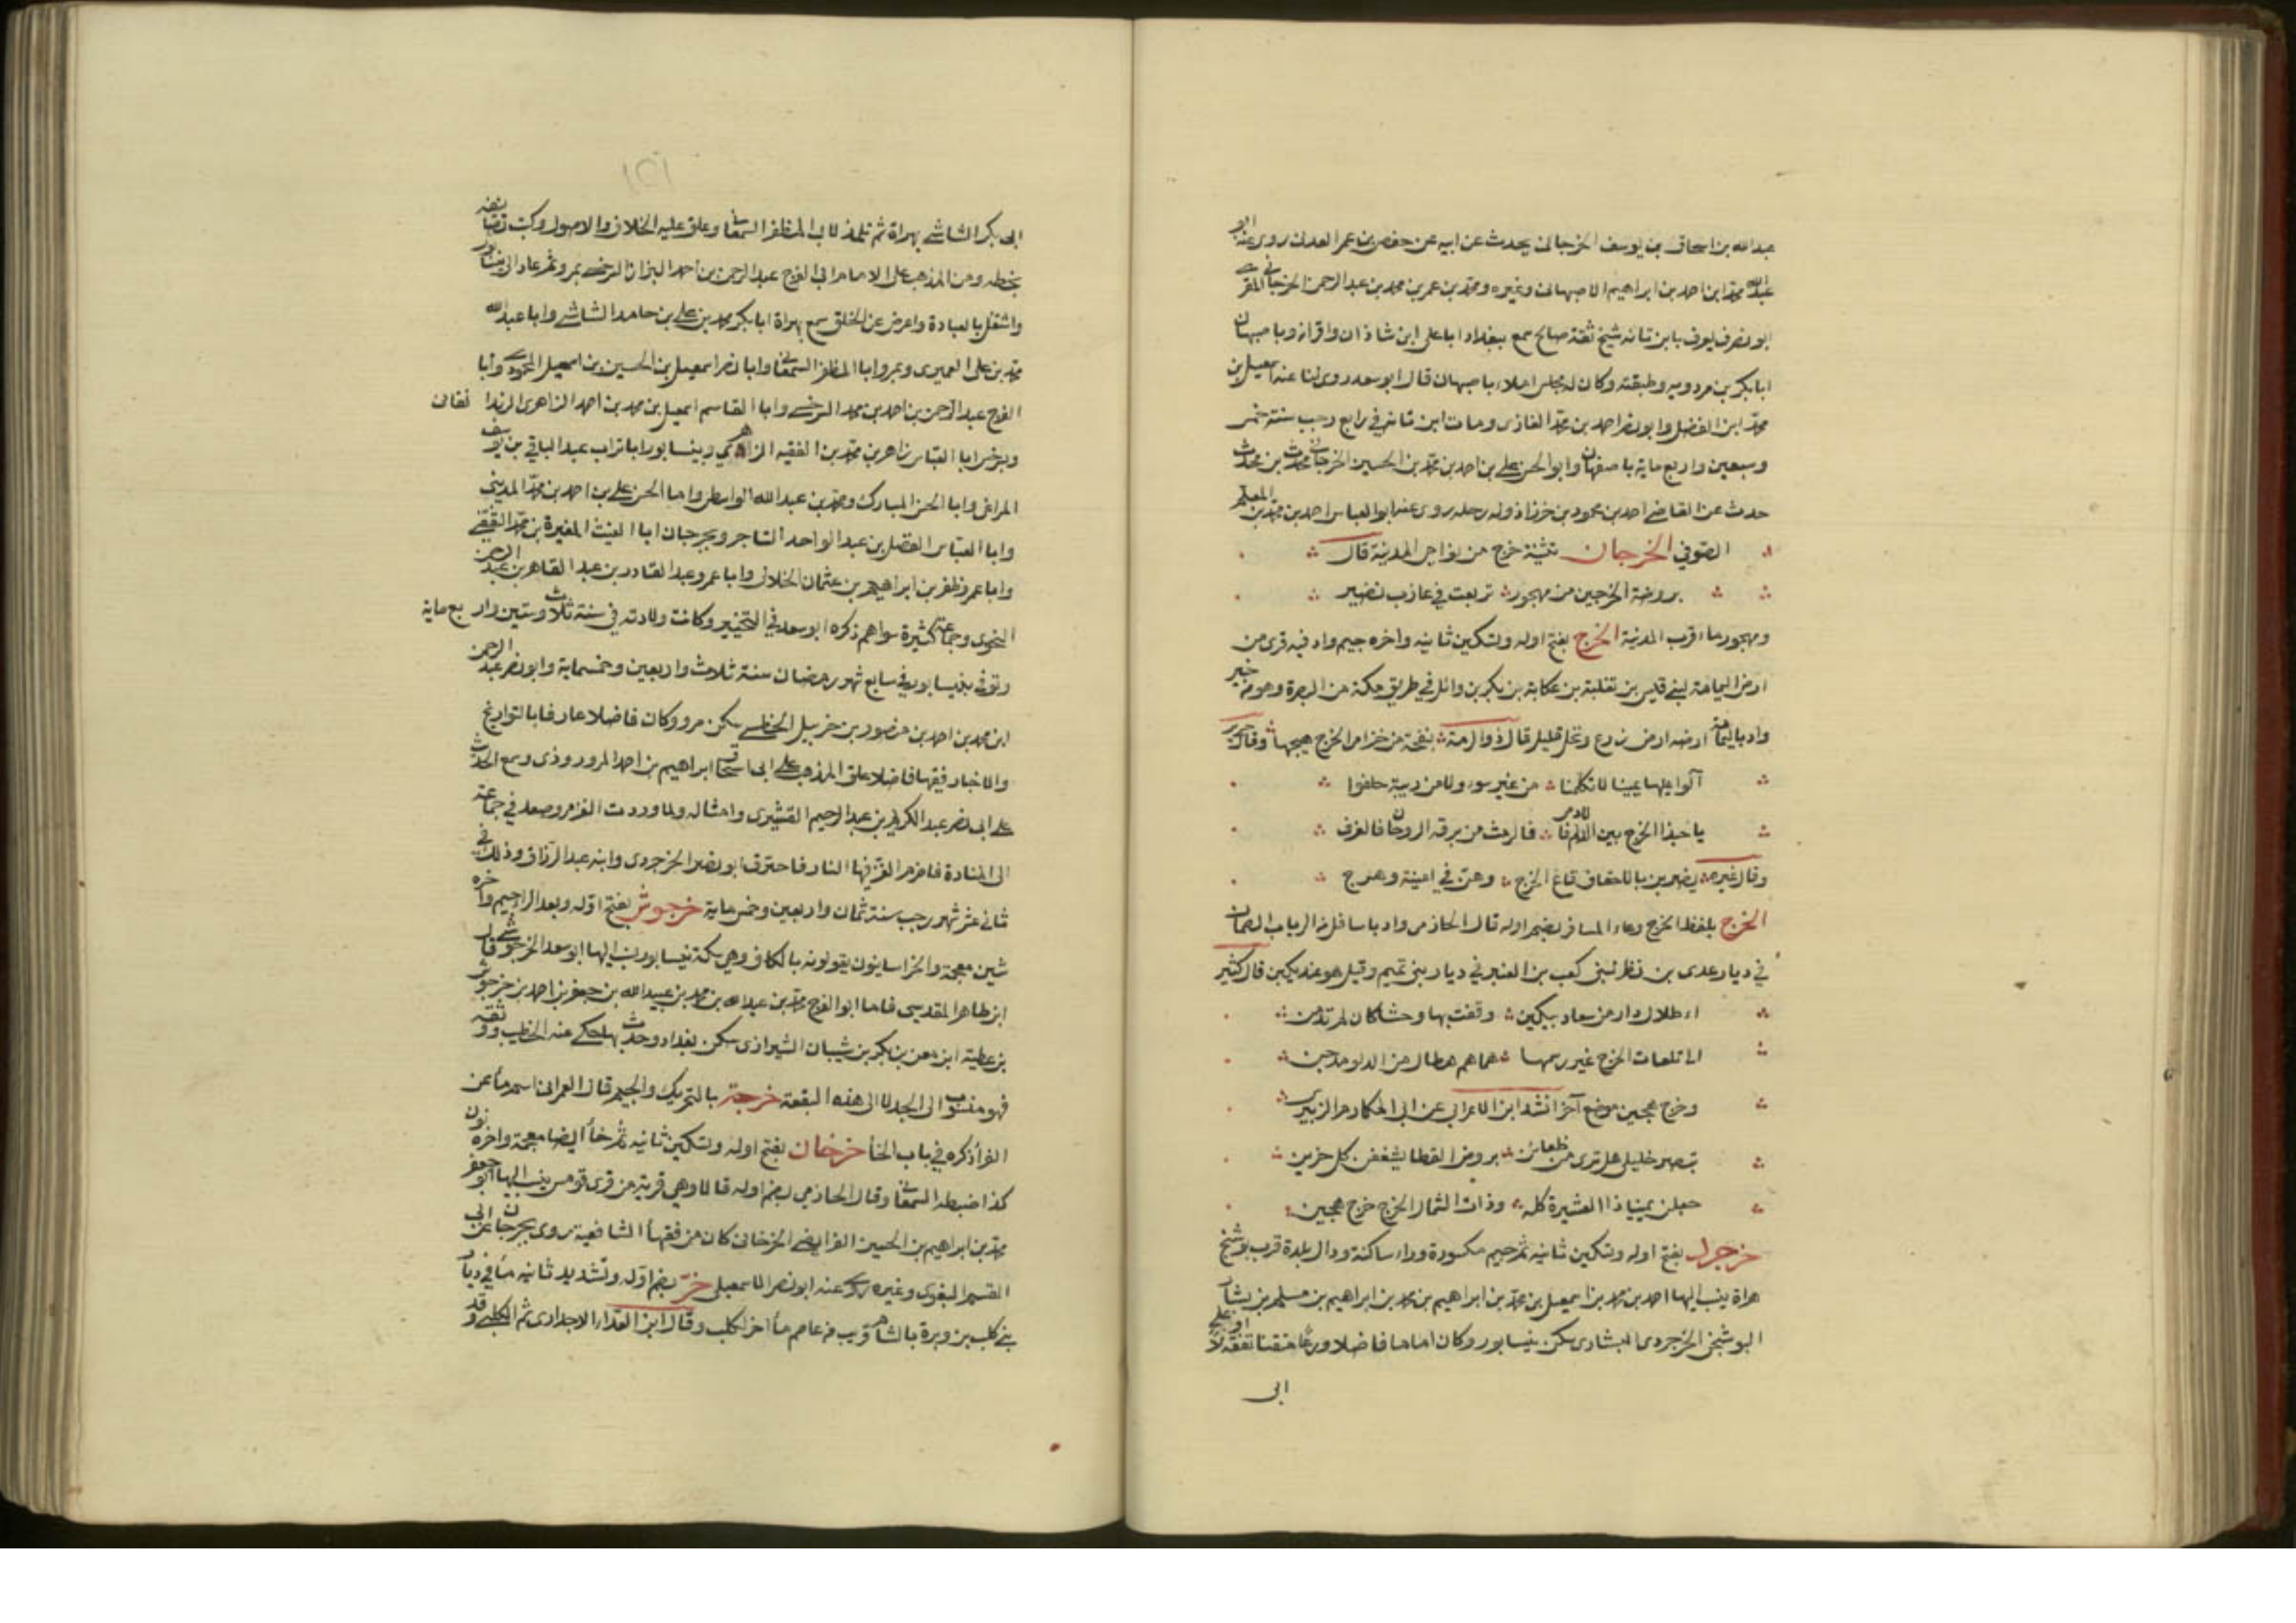 عبدالله بن اسحاق بن يوسف الخرجانى يحدث عن ابيه عن حفص بن عمر العدنى روى عنه ابو
عبدالله محمد ابن احمد بن ابراهيم الاصبهانى وغيره ومحمد بن عمر بن محمد بن عبدالرحمن الخرجانى المقرى
ابو نصر يعرف بابن تانه شيخ ثقة صالح سمع ببغداد ابا على ابن شاذان واقرانه وباصبهان
ابا بكر بن مردويه وطبقته وكان له مجلس املاء باصبهان قال ابو سعد روى لنا عنه اسمعيل بن
محمد ابن الفضل وابو نصر احمد بن محمد الغازى ومات ابن تانه في رابع رجب سنة خمس
وسبعين واربع ماية باصفهان وابو الحسن على بن احمد بن محمد بن الحسين الخرجانى محدث بن محدث
حدث عن القاضى احمد بن محمود بن خرزاذ وله رحلة روى عنه ابو العباس احمد بن محمد بن المعلم
الصوفي الخرجان تثنية خرج من نواحى المدينة قال
بروضة الخرجين من مهجور تربعت في عازب نضير
ومهجور ماء قرب المدينة الخرج بفتح اوله وتسكين ثانيه واخره جيم واد فيه قرى من
ارض اليمامة لبنى قيس بن ثعلبة بن عكابة بن بكر بن وائل في طريق مكة من البصرة وهو من خير
واد باليمامة ارضه ارض زرع ونخل قليل قال ذو الرمة بنفحة من خزامى الخرج هيجها وقال جرير
آلوا عليها يمينا لا تكلمنا من غير سوء ولا من ريبة حلفوا
يا حبذا الخرج بين الدام فالادمى فالرمث من برقة الروحان فالغرف
وقال غيره يضربن بالاحقاف قاع الخرج وهن في امنية وهرج
الخرج بلفظ الخرج وعاء المسافر بضم اوله قال الحازمى واد باسافل من الرباب الصمان
في ديار عدى بن نظر لبنى كعب بن العنبر في ديار بنى تميم وقيل هو عند يكبن قال كثير
ء اطلال دار من سعاد بيكين وقفت بها وحشا كان لم تدمن
الى تلعات الخرج غير رسمها همايم هطال من الدلو مدجن
وخرج هجين موضع آخر انشد ابن الاعرابى عن ابى المكارم الزبيرى
تبصر خليلى هل ترى من ظعائن بروض القطا يشعفن كل حزين
جعلن يمينا ذا العشيرة كله وذات الشمال الخرج خرج هجين
خرجرد بفتح اوله وتسكين ثانيه ثم جيم مكسورة وراء ساكنة ودال بلدة قرب بوشنج
هراة ينسب اليها احمد بن محمد بن اسمعيل بن محمد بن ابراهيم بن محمد بن ابراهيم بن مسلم بن بشار
البوشنجى الخرجردى البشارى سكن نيسابور وكان اماما فاضلا ورعا متقنا تفقه اولا على
ابى
ابى بكر الشاشى بهراة ثم تلمذ لابى المظفر السمعانى وعلق عليه الخلاف والاصول وكتب تصانيفه
بخطه ومن المذهب على الامام ابى الفرج عبدالرحمن بن احمد البزاز السرخسى بمرو ثم عاد الى نيسابور
واشتغل بالعبادة واعرض عن الخلق سمع بهراة ابا بكر محمد بن على بن حامد الشاشى وابا عبدالله
محمد بن على العميرى وبمرو ابا المظفر السمعانى وابا نصر اسمعيل بن الحسين بن اسمعيل المحمودى وابا
الفرج عبدالرحمن بن احمد بن محمد السرخسى وابا القاسم اسمعيل بن محمد بن احمد الزاهرى الدندانقانى
وبسرخس ابا العباس زاهر بن محمد بن الفقيه الزاهرى وبنيسابور ابا تراب عبدالباقي بن يوسف
المراغى وابا الحسن المبارك ومحمد بن عبدالله الواسطى وابا الحسن على بن احمد بن محمد المدينى
وابا العباس الفضل بن عبدالواحد التاجر وبجرجان ابا الغيث المغيرة بن محمد الثقفى
وابا عمرو ظفر بن ابراهيم بن عثمان الخلالى وابا عمرو عبدالقادر بن عبدالقاهر بن عبدالرحمن
النحوى وجماعة كثيرة سواهم ذكره ابو سعد في التحبير وكانت ولادته في سنة ثلاث وستين واربع ماية
وتوفى بنيسابور في سابع شهر رمضان سنة ثلاث واربعين وخمسماية وابو نصر عبدالرحمن
ابن محمد بن احمد بن منصور بن خربيل الخطيبى سكن مرو وكان فاضلا عارفا بالتواريخ
والاخبار فقيها فاضلا علق المذهب على ابى اسحاق ابراهيم بن احمد المروروذى وسمع الحديث
على ابى نصر عبدالكريم بن عبدالرحيم القشيرى وامثاله ولما وردت الغز مرو صعد في جماعة
الى المنارة فاضرم الغز فيها النار فاحترق ابو نصر الخرجردى وابنه عبدالرزاق وذلك في
ثانى عشر شهر رجب سنة ثمان واربعين وخمس ماية خرجوش بفتح اوله وبعد الرا جيم واخره
شين معجمة والخراسانيون يقولونه بالكاف وهي سكة نيسابور ينسب اليها ابو سعد الخرجوشى قال
ابن طاهر المقدسى فاما ابو الفرج محمد بن عبدالله بن محمد بن عبيدالله بن جعفر بن احمد بن خرجوش
بن عطية ابن معن بن بكر بن شيبان الشيرازى سكن بغداد وحدث بها حكى عنه الخطيب ووثقه
فهو منسوب الى الجد لا الى هذه البقعة خرجة بالتحريك والجيم قال العمرانى اسم ماء عن
الفراء ذكره في باب الخاء خرخان بفتح اوله وتسكين ثانيه ثم خاء ايضا معجمة واخره نون
كذا ضبطه السمعانى وقال الحازمى بضم اوله قالا وهي قرية من قرى قومس ينسب اليها ابو جعفر
محمد بن ابراهيم بن الحسين الفرايضى الخرخانى كان من فقهاء الشافعية روى بجرجان عن ابى
القسم البغوى وغيره روى عنه ابو نصر الاسمعيلى خر بضم اوله وتشديد ثانيه ماء في ديار
بنى كلب بن وبرة بالشام قريب من عاصم ماء اخر لكلب وقال ابن العداء الاجدارى ثم الكلبى وقد